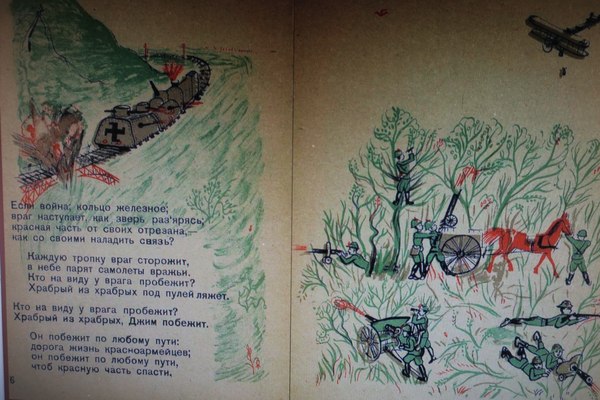 Если война, кольцо железное;
враг наступает, как зверь раз'ярясь;
красная часть от своих отрезана,—
как со своими наладить связь?
Каждую тропку враг сторожит,
в небе парят самолеты вражьи.
Кто на виду у врага пробежит?
Храбрый из храбрых под пулей ляжет.
Кто на виду у врага пробежит?
Храбрый из храбрых, Джим побежит.
Он побежит по любому пути:
дорога жизнь красноармейцев;
он побежит по любому пути,
чтоб красную часть спасти,
6